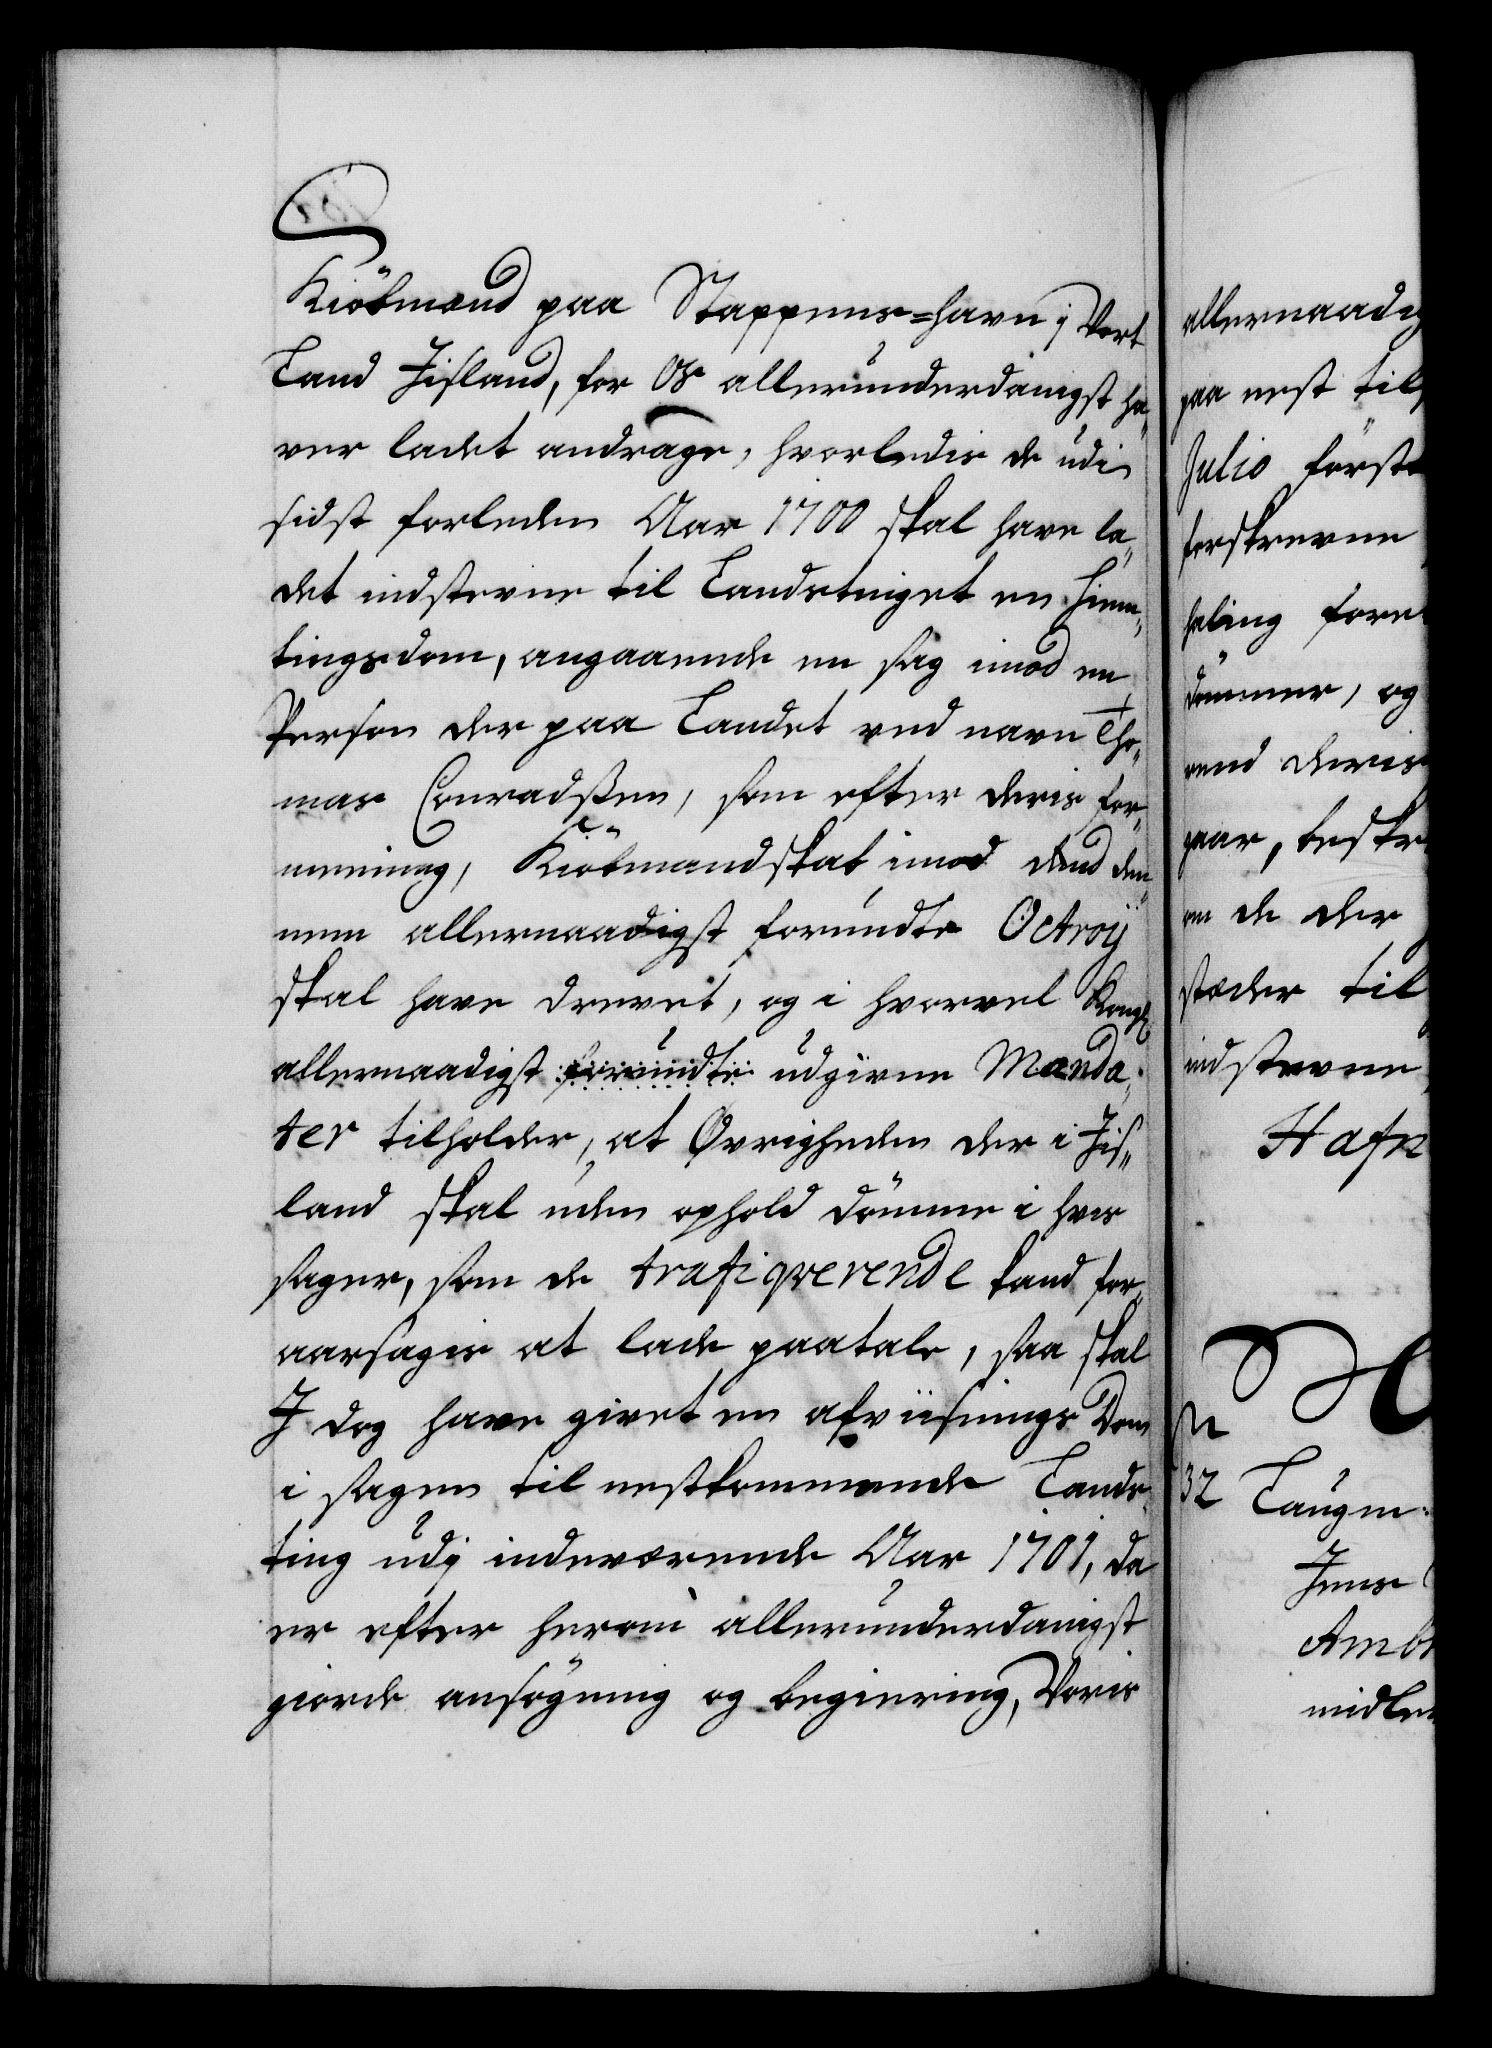 Kiöbmænd paa Stappens-havn j Vort
Land Jisland, for Os allerunderdanigst ha„
ver ladet andrage, hvorledis de udi
sidst forleden Aar 1700 skal have la„
det indstevne til Landstinget en Hiem„
tingsdom, angaaende en sag imod en
Person der paa Landet ved navn Tho„
mas Conradßen, som efter deris for„
meening, Kiöbmandskab imod dend dem„
nem allernaadigst forundte Octroij
skal have drevet, og i hvorvel Kongl:
allernaadigst forundte udgivne Manda„
ter tilholder, at Øvrigheden der i Jis„
land skal uden ophold dömme i hvis
sager, som de trafiqverende kand for„
aarsagis at lade paatale, saa skal
J dog have givet en afviisnings Dom
i sagen til nestkommende Lands„
ting udj indeværende Aar 1701, da
er efter herom allerunderdanigst
giorde ansögning og begiering, Voris
allernaadig
paa nest til
Julio först
forskrevne
haling fore
dömmer, og
vend deris
gaar, beskr
om de der
stæder til
indstevne
Hafn
32 Laugm
Jens
Amb
midle